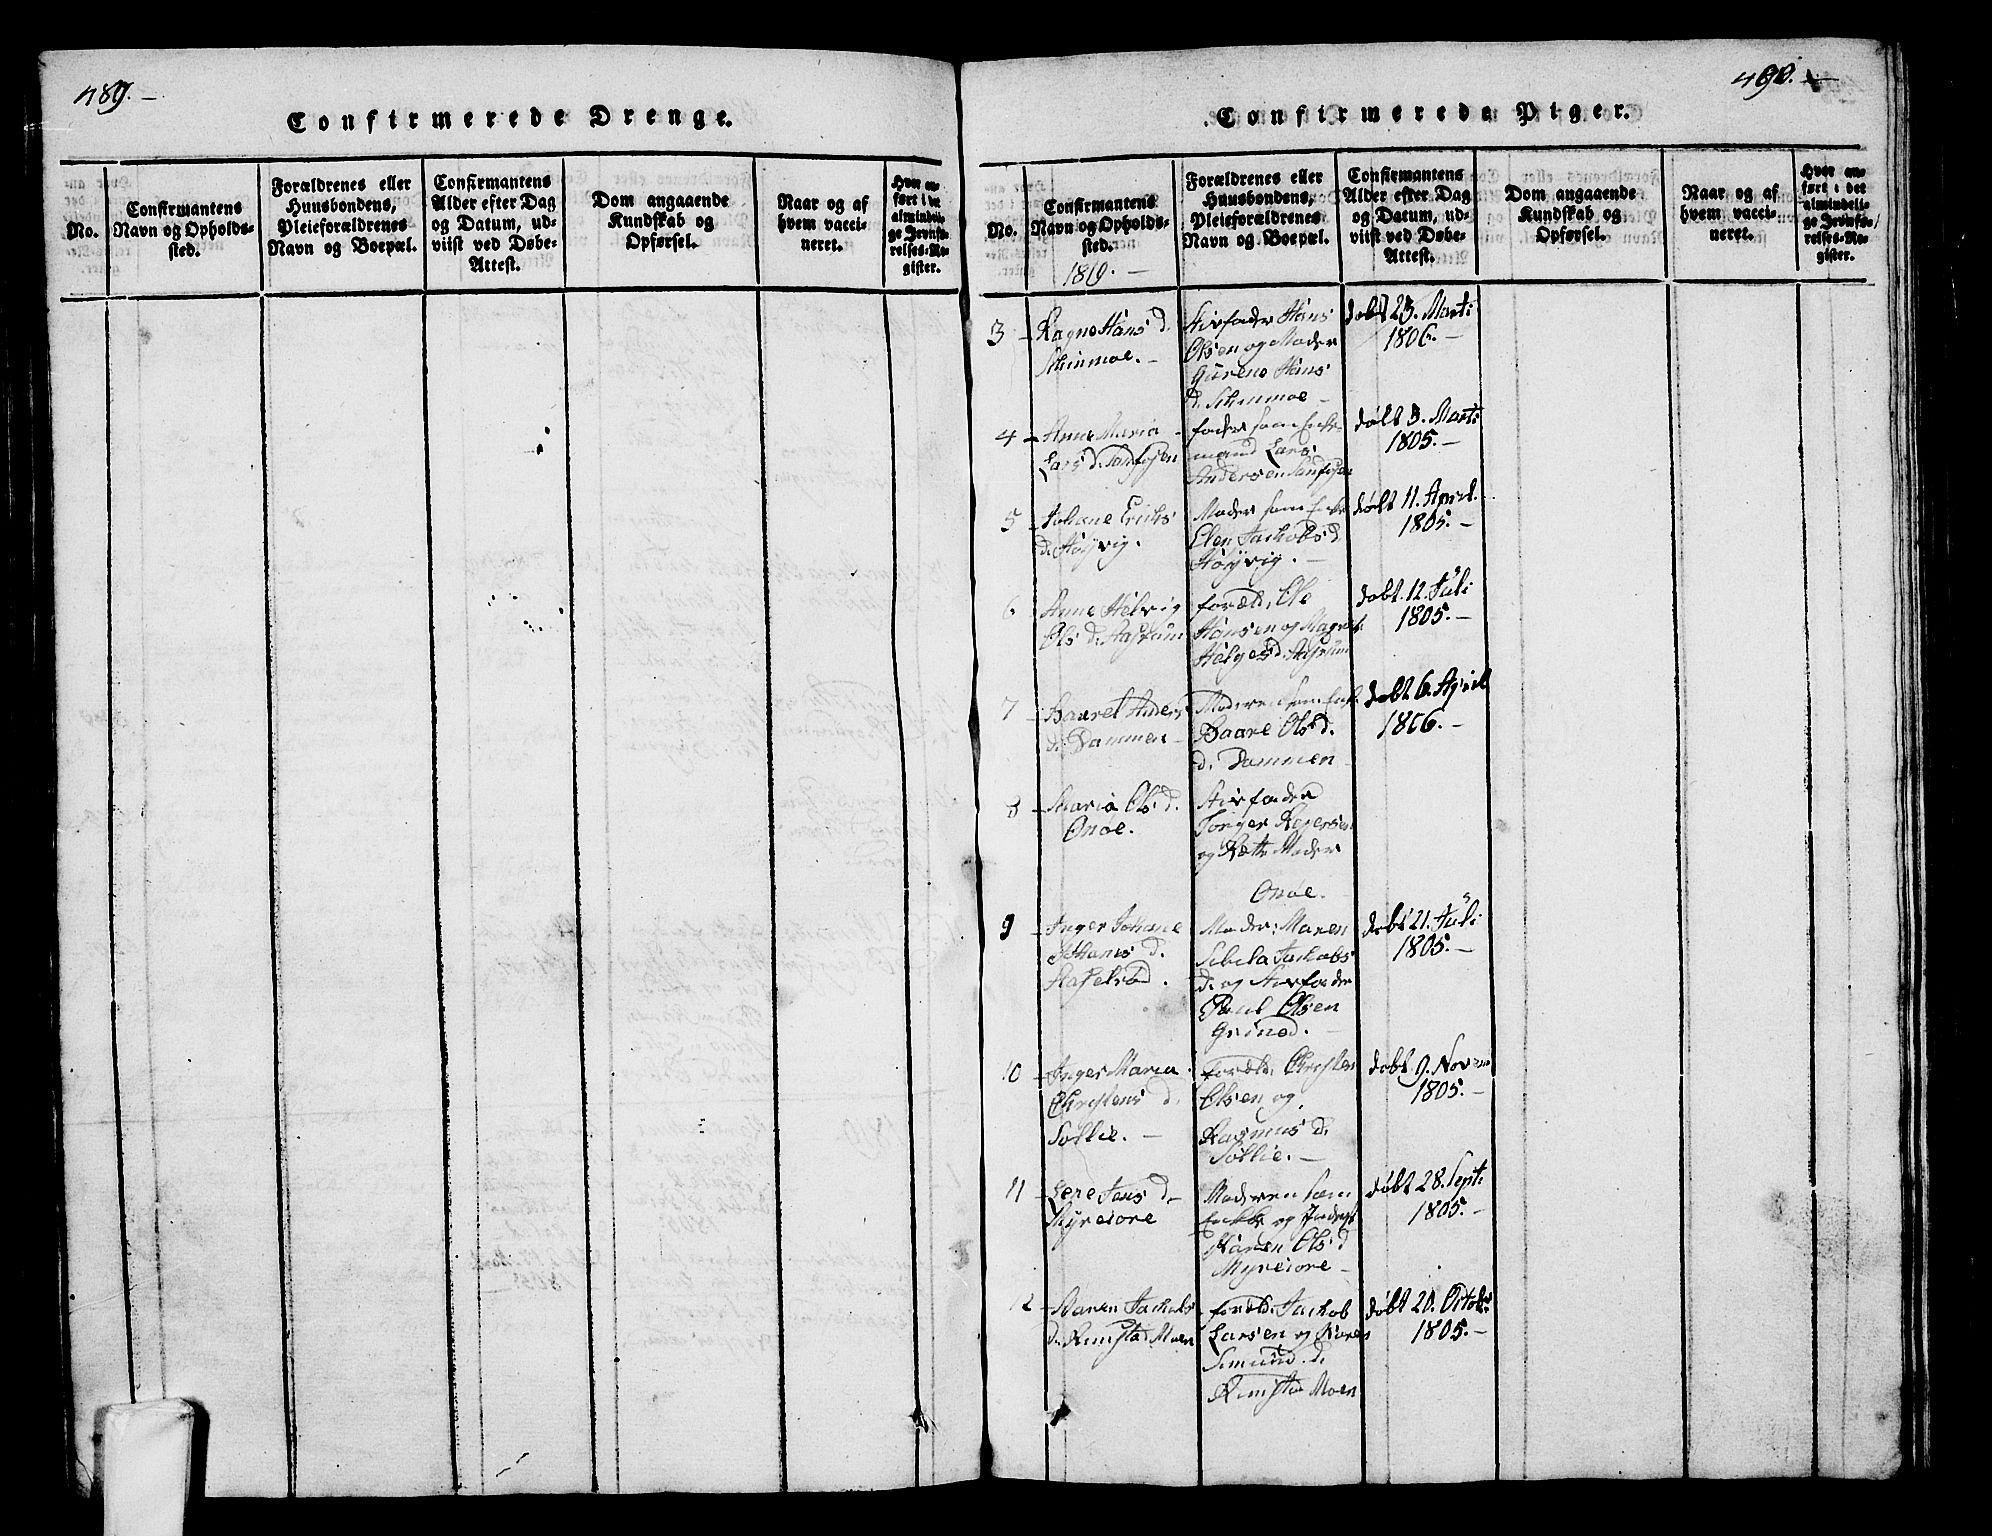 489. —
Confirmerede Drenge.
No.
Confirmantens
Navn og Opholds-
sted.
Forældrenes eller
Huusbondens,
Pleieforældrenes
Navn og Boepæl.
Confirmantens
Alder efter Dag
og Datum, ud-
viist ved Døbe-
Attest.
Dom angaaende
Kundskab og
Opførsel.
Naar og af
hvem vacci-
neret.
Hvor an-
ført i det
almindeli-
ge Jevnfø-
relses-Re-
gister.
490. —
Confirmerede Piger.
No.
Confirmantens
Navn og Opholds-
sted.
1819. —
Forældrenes eller
Huusbondens,
Pleieforældrenes
Navn og Boepæl.
Confirmantens
Alder efter Dag
og Datum, ud-
viist ved Døbe-
Attest.
Dom angaaende
Kundskab og
Opførsel.
Naar og af
hvem vacci-
neret.
Hvor an-
ført i det
almindeli-
ge Jevnfø-
relses-Re-
gister.
3 - Ragne Hans d.
Stivfader Hans
Olsen og Moder
Gurene Hans
d.
døbt 23. Marti
1806. —
4 - Anne Maria
Lars d.
fader som Enke-
mand Lars
Andersen
døbt 3. Marti
1805. —
5 - Johane Eriks
d. Høyvig.
Moder som Enke
Elen Jackobs d
Høyvig. —
døbt 11. April.
1805. —
6 - Anne Helvig
Ols d.
foræld. Ole
Hansen og
Helges d.
døbt. 12. Juli
1805. —
7 - Baarel Anders
d. Dammen
Moderen som Enke
Baare Ols d.
d. Dammen
døbt 6. April
1806. —
8 - Maria Ols d.
Onoe.
Stivfader
Torger
og Rette Moder
Onoe.
9 - Inger Johane
Johanes d.
Moder: Maren
Sibela Jackobs
d. og Stivfader
Poul Olsen
Grinod. —
døbt 21. Juli
1805. —
10 - Inger Maria
Christens d.
Sollie. —
Foreld: Christen
Olsen og
Rasmus d.
Sollie. —
døbt 9. Novem
1805. —
11 - Lene Jens d.
Myreiore
Moderen som
Enke og
Karen Ols d
Myreiore —
døbt 28. Sept:
1805. —
12 - Maren Jackobs
d. Rimstad Moen
foreld: Jackob
Larsen og Karen
Simund. d.
Rimstad Moen
døbt 20. Octobr
1805. —